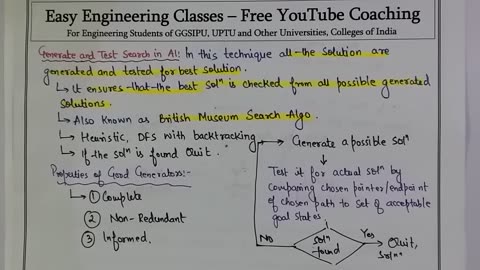 Easy Engineering Classes – Free YouTube Coaching
For Engineering Students of GGSIPU, UPTU and Other Universities, Colleges of India
Generate and Test Search in AI: In this technique all the solution are
generated and tested for best solution.
↳ It ensures that the best solⁿ is checked from all possible generated
solutions.
↳ Also known as British Museum Search Algo.
↳ Heuristic, DFS with backtracking
↳ If the solⁿ is found Quit.
Properties of Good Generators:-
↳ ① Complete
② Non-Redundant
③ Informed.
→ Generate a possible solⁿ
Test it for actual solⁿ by
comparing chosen pointer/endpoint
of chosen path to set of acceptable
goal states
solⁿ
found
No
Yes
Quit,
solⁿ